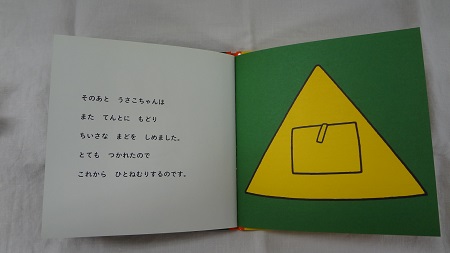 そのあと　うさこちゃんは
また　てんとに　もどり
ちいさな　まどを　しめました。
とても　つかれたので
これから　ひとねむりするのです。